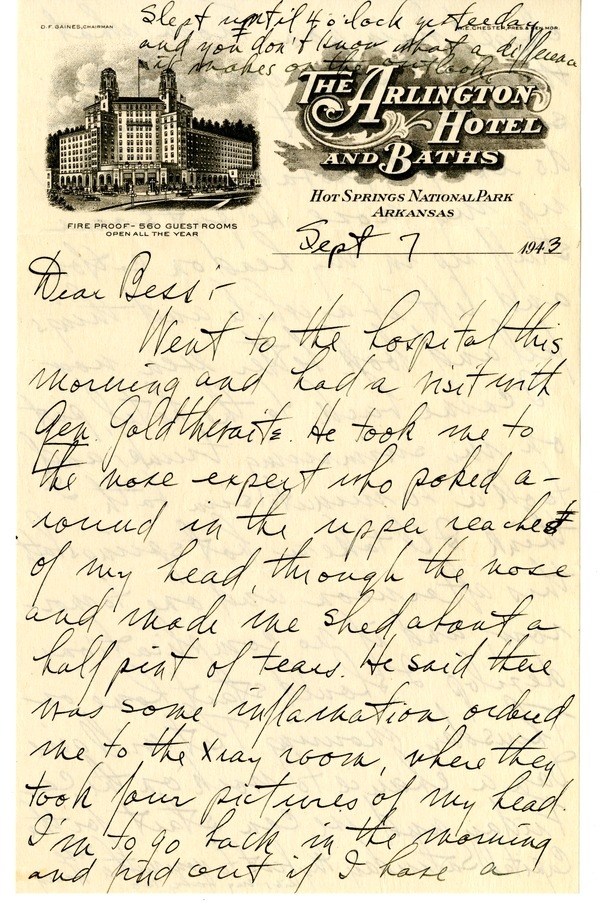 Slept until 4 o'clock yesterday
and you don't know what a difference
it makes on the outlook
D. F. GAINES, CHAIRMAN
W. E. CHESTER, PRES. & GEN. MGR.
THE ARLINGTON
HOTEL
AND BATHS
HOT SPRINGS NATIONAL PARK
ARKANSAS
FIRE PROOF - 560 GUEST ROOMS
OPEN ALL THE YEAR
Sept 7 1943
Dear Bess:-
Went to the hospital this
morning and had a visit with
Gen. Goldthwaite. He took me to
the nose expert who poked a-
round in the upper reaches
of my head, through the nose
and made me shed about a
half pint of tears. He said there
was some inflamation, ordered
me to the xray room, where they
took four pictures of my head.
I'm to go back in the morning
and find out if I have a